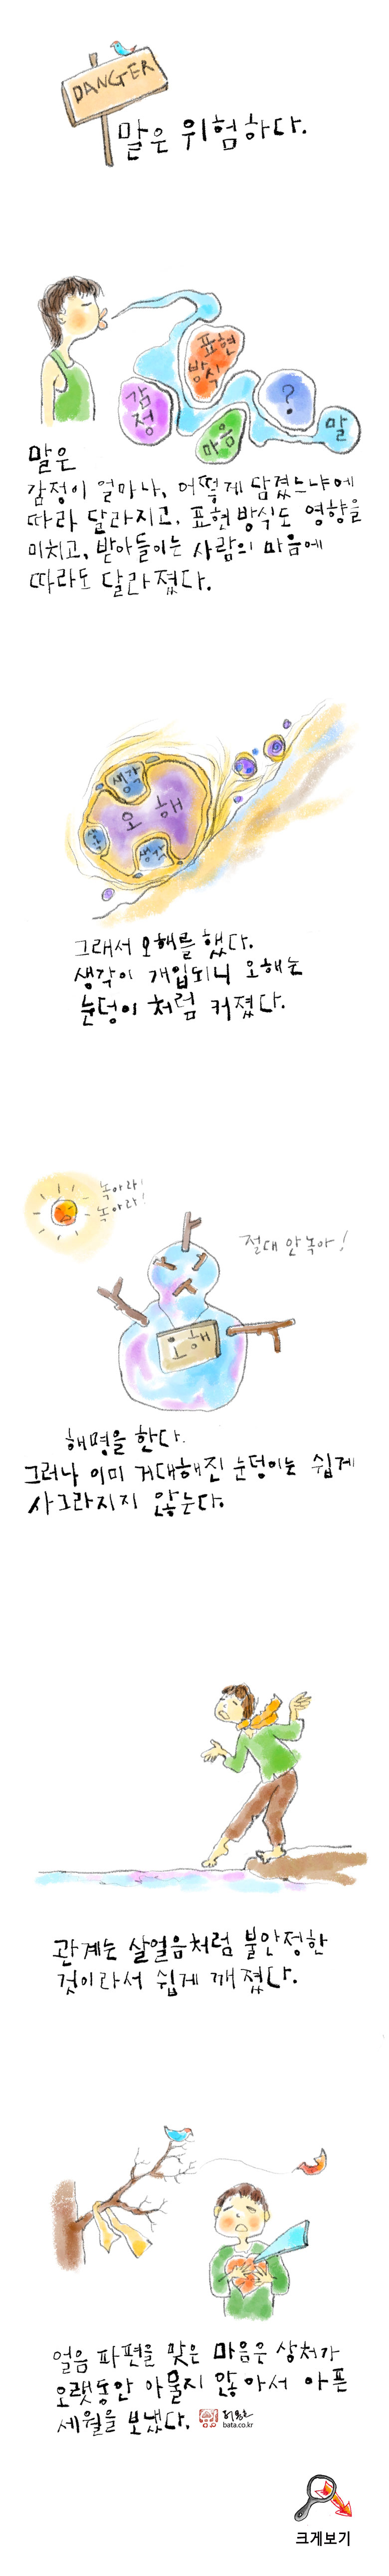 DANGER
말은 위험하다.
표현
방식
감
정
?
마음
말
말은
감정이 얼마나, 어떻게 담겼느냐에
따라 달라지고, 표현방식도 영향을
미치고, 받아들이는 사람의 마음에
따라도 달라졌다.
생각
오해
생각
생각
그래서 오해를 했다.
생각이 개입되니 오해는
눈덩이 처럼 커졌다.
녹아라!
녹아라!
절대 안녹아!
오해
해명을 한다.
그러나 이미 거대해진 눈덩이는 쉽게
사그라지지 않는다.
관계는 살얼음처럼 불안정한
것이라서 쉽게 깨졌다.
얼음 파편을 맞은 마음은 상처가
오랫동안 아물지 않아서 아픈
세월을 보냈다.
bata.co.kr
크게보기